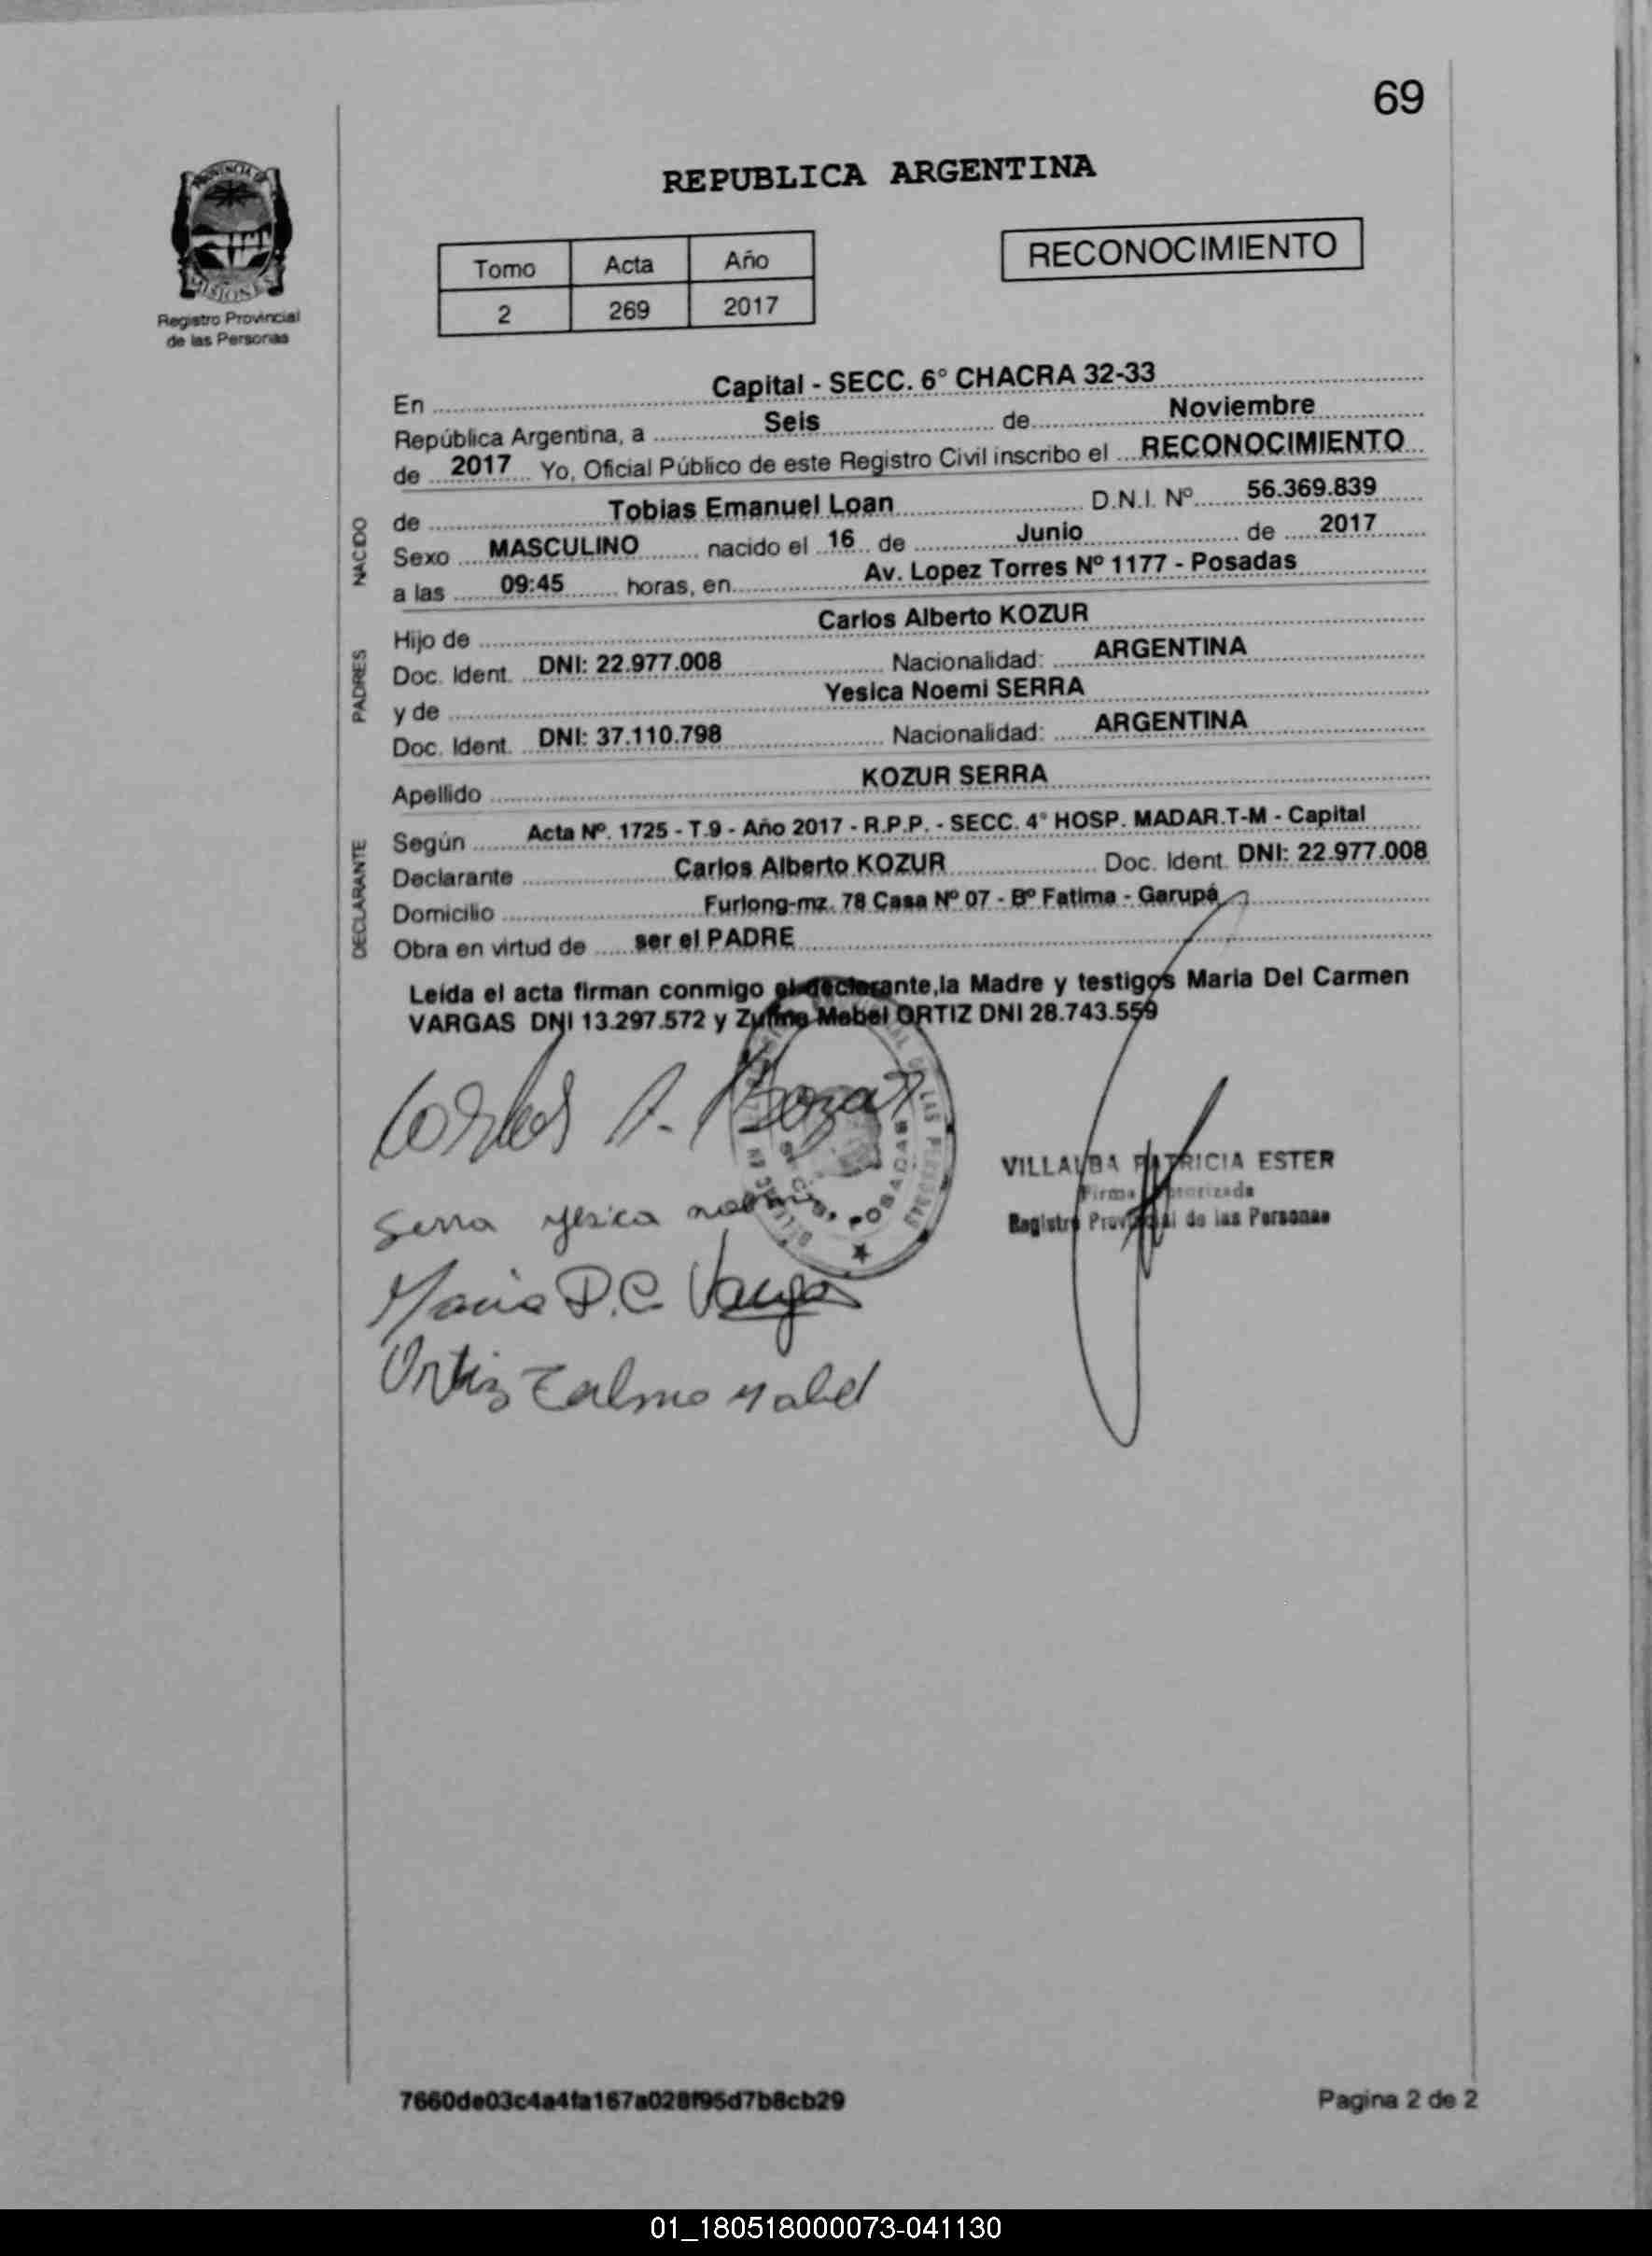 69
REPUBLICA ARGENTINA
PROVINCIA DE
MISIONES
Registro Provincial
de las Personas
Tomo Acta Año
2 269 2017
RECONOCIMIENTO
En Capital - SECC. 6° CHACRA 32-33
República Argentina, a Seis de Noviembre
de 2017 Yo, Oficial Público de este Registro Civil inscribo el RECONOCIMIENTO
NACIDO
de Tobias Emanuel Loan D.N.I. Nº 56.369.839
Sexo MASCULINO nacido el 16 de Junio de 2017
a las 09:45 horas, en Av. Lopez Torres Nº 1177 - Posadas
PADRES
Hijo de Carlos Alberto KOZUR
Doc. Ident. DNI: 22.977.008 Nacionalidad: ARGENTINA
y de Yesica Noemi SERRA
Doc. Ident. DNI: 37.110.798 Nacionalidad: ARGENTINA
Apellido KOZUR SERRA
DECLARANTE
Según Acta Nº. 1725 - T.9 - Año 2017 - R.P.P. - SECC. 4° HOSP. MADAR.T-M - Capital
Declarante Carlos Alberto KOZUR Doc. Ident. DNI: 22.977.008
Domicilio Furlong-mz. 78 Casa Nº 07 - Bº Fatima - Garupá
Obra en virtud de ser el PADRE
Leída el acta firman conmigo el declarante,la Madre y testigos Maria Del Carmen
VARGAS DNI 13.297.572 y Mabel ORTIZ DNI 28.743.559
Carlos A. Kozur
Serra Yesica noemi
Maria D.C. Vargas
Ortiz Mabel
POSADAS
VILLALBA PATRICIA ESTER
Firma Autorizada
Registro Provincial de las Personas
7660de03c4a4fa167a028f95d7b8cb29
Pagina 2 de 2
01_180518000073-041130